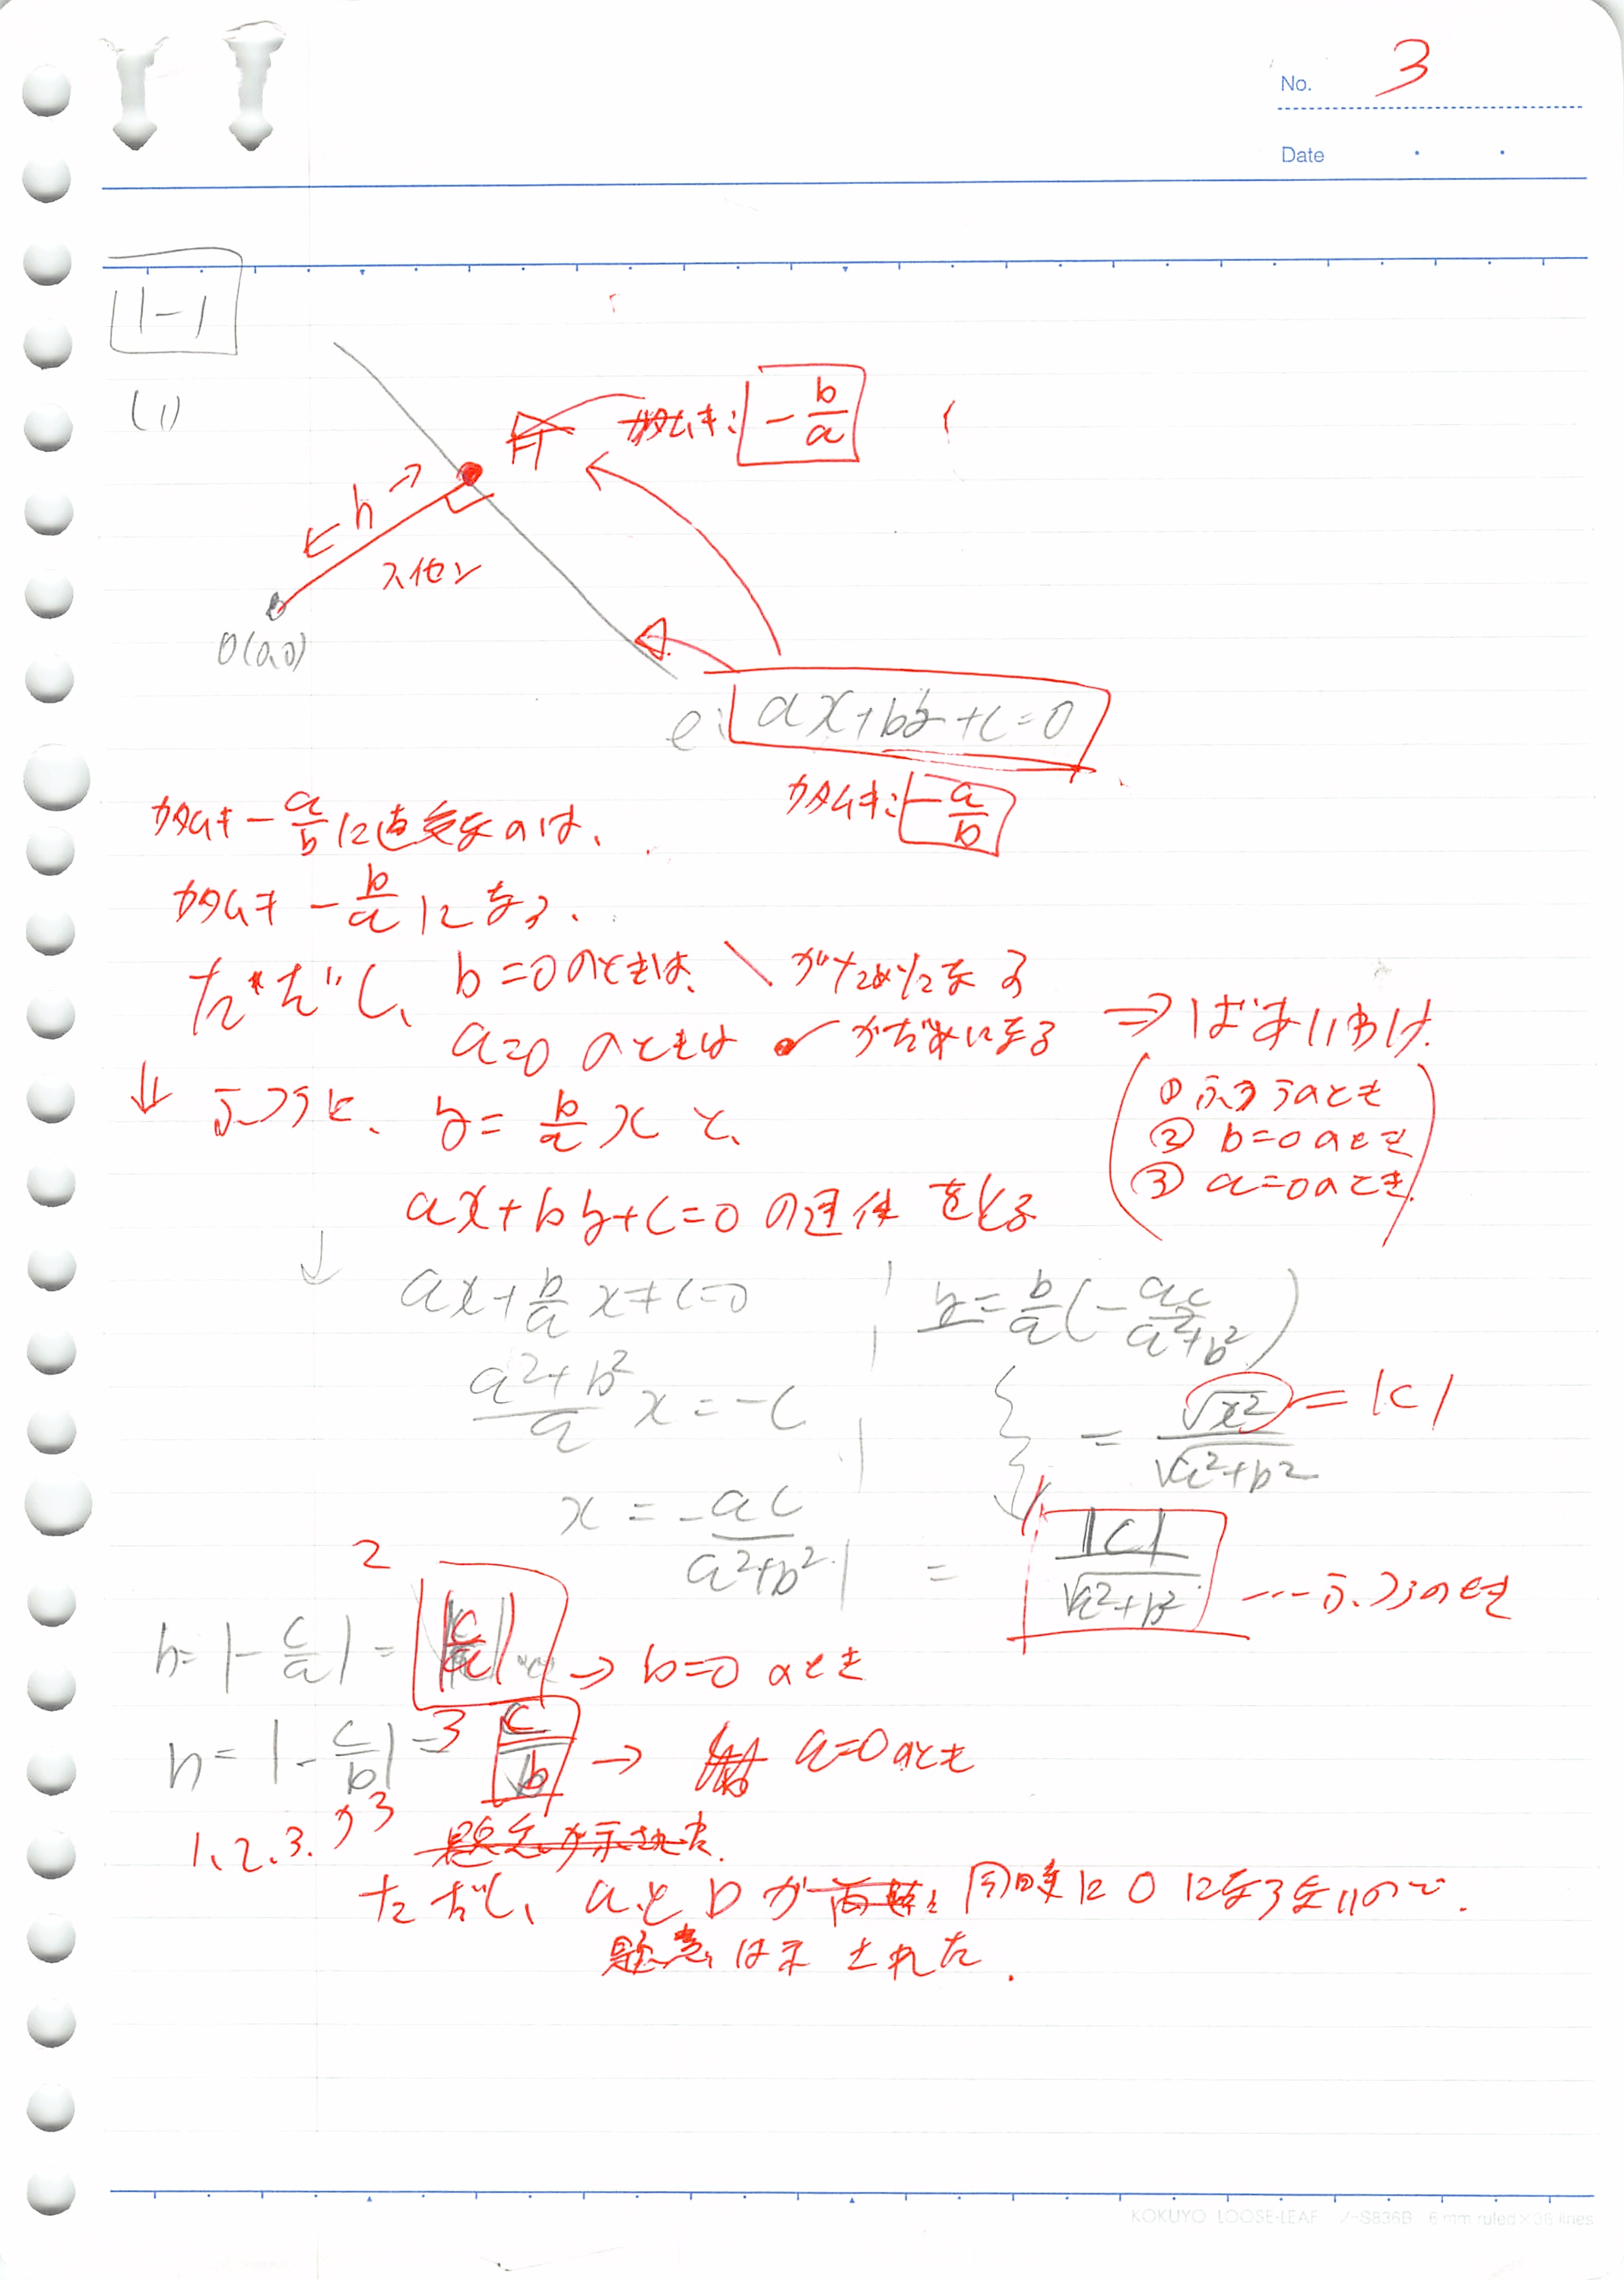 No. 3
Date
1-1
(1)
カタムキ: -b/a
h
スイセン
O(0,0)
l: ax+by+c=0
カタムキ: -a/b
カタムキ -a/b に直交なのは、
カタムキ -b/a になる.
ただし、 b=0のときは、 \ がだめになる
a=0 のときは がだめになる ⇒ ばあいわけ.
① ふつうのとき
② b=0のとき
③ a=0のとき
↓ ふつうと、 y= b/a x と、
ax+by+c=0 の連律をとる
↓ ax+ b/a x+c=0
y= b/a (- ac/a²+b²)
a²+b²/a x = -c
= √x²/√a²+b² = |c|
x = -ac/a²+b²
= |c|/√a²+b² … ふつうのとき
2
h= |- c/a| = |c/a| → b=0 のとき
h= |- c/b| = 3 c/b → a=0のとき
1、2、3.より 題意が示された.
ただし、 aとbが 同時に 0 になるないので.
題意は示された.
KOKUYO LOOSE-LEAF ノ-S836B 6 mm ruled×36 lines